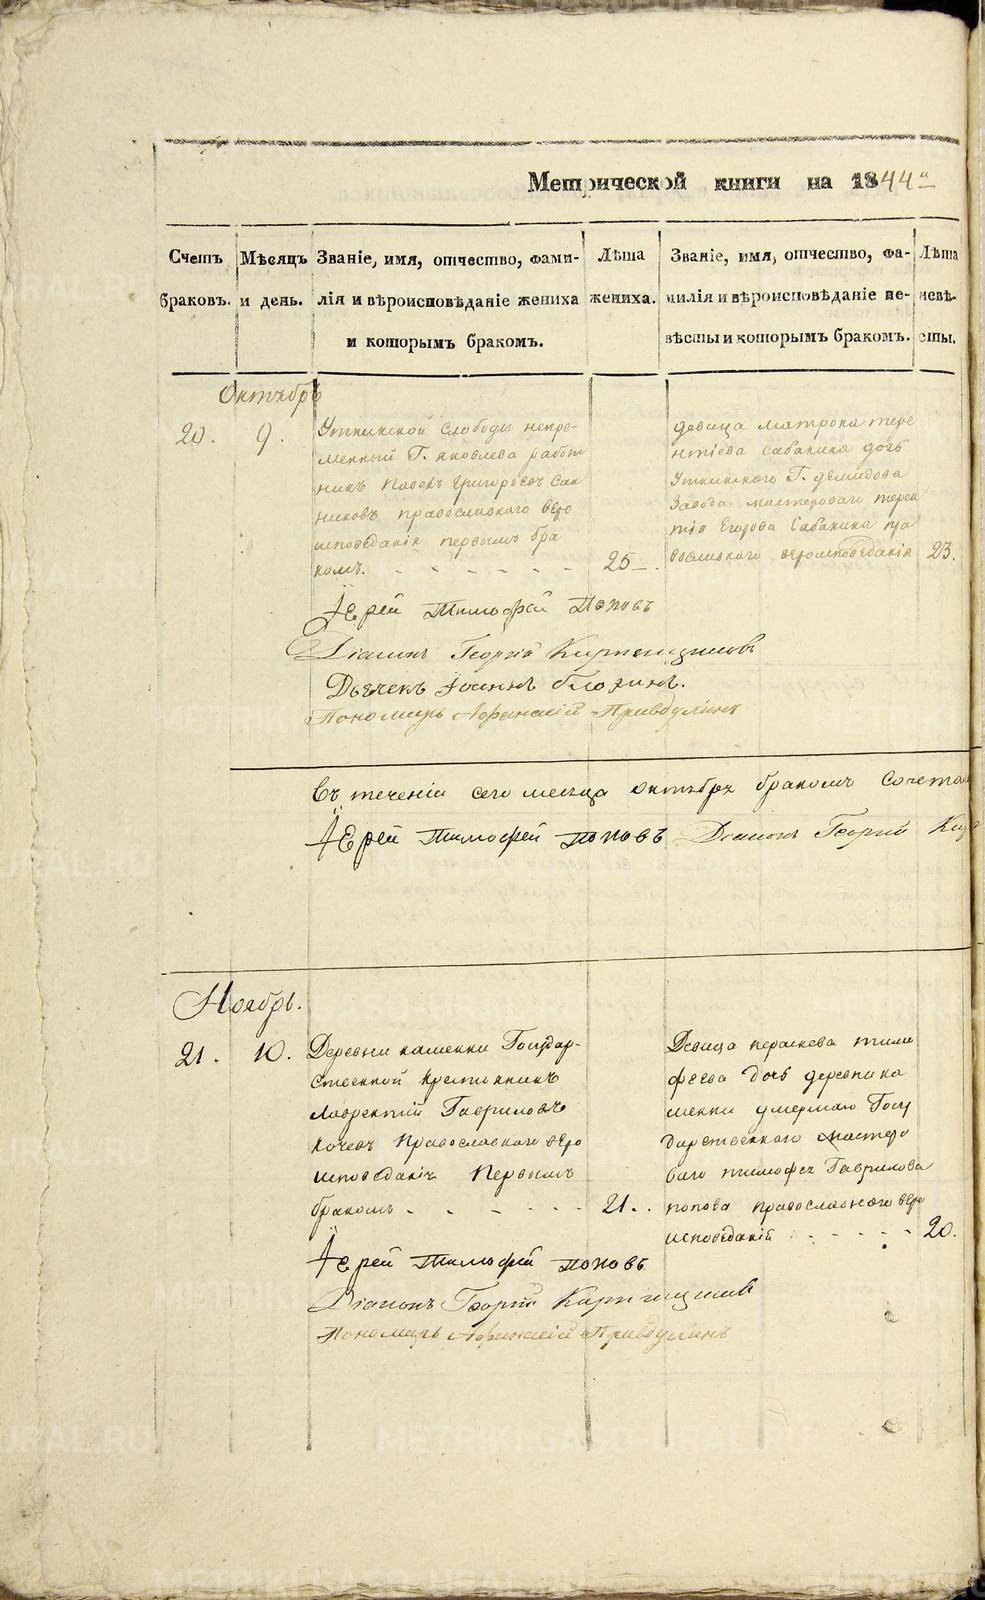 Метрической книги на 1844й
Счетъ браковъ.
Мѣсяцъ и день.
Званіе, имя, отчество, фами-
лія и вѣроисповѣданіе жениха
и которымъ бракомъ.
Лѣта
жениха.
Званіе, имя, отчество, фа-
милія и вѣроисповѣданіе не-
вѣсты и которымъ бракомъ.
Лѣта
невѣ-
сты.
Октябрь
20. 9.
Уткинской слободы непре-
менный Г. Яковлева работ
никъ Григорьевъ
православнаго веро
исповеданія первымъ бра
комъ. - - - - - -
25.
девица матрона тере
нтіева Сабакина дочь
Уткинского Г. демидова
Завода мастероваго терен
тія Егорова Сабакина пра
вославного вероисповеданія
23.
Іерей Тимофей Поповъ
Діаконъ Георгій
Дьячекъ
Пономарь Афанасій
въ теченіи сего месяца октября бракомъ сочета
Іерей Тимофей Поповъ Діаконъ Георгій
Ноябрь.
21. 10.
Деревни каменки Государ-
ственной крестьянинъ
Лаврентій Гавриловъ
Кочевъ Православнаго веро
исповеданія Первымъ
бракомъ - - - - - -
21.
Девица параскева тимо
феева дочь деревни ка
менки умершаго Госу
дарственного мастеро
ваго тимофея Гаврилова
попова православного веро
исповеданій - - - - -
20.
Іерей Тимофей Поповъ
Діаконъ Георгій
Пономарь Афанасій
METRIKI.GASO-URAL.RU